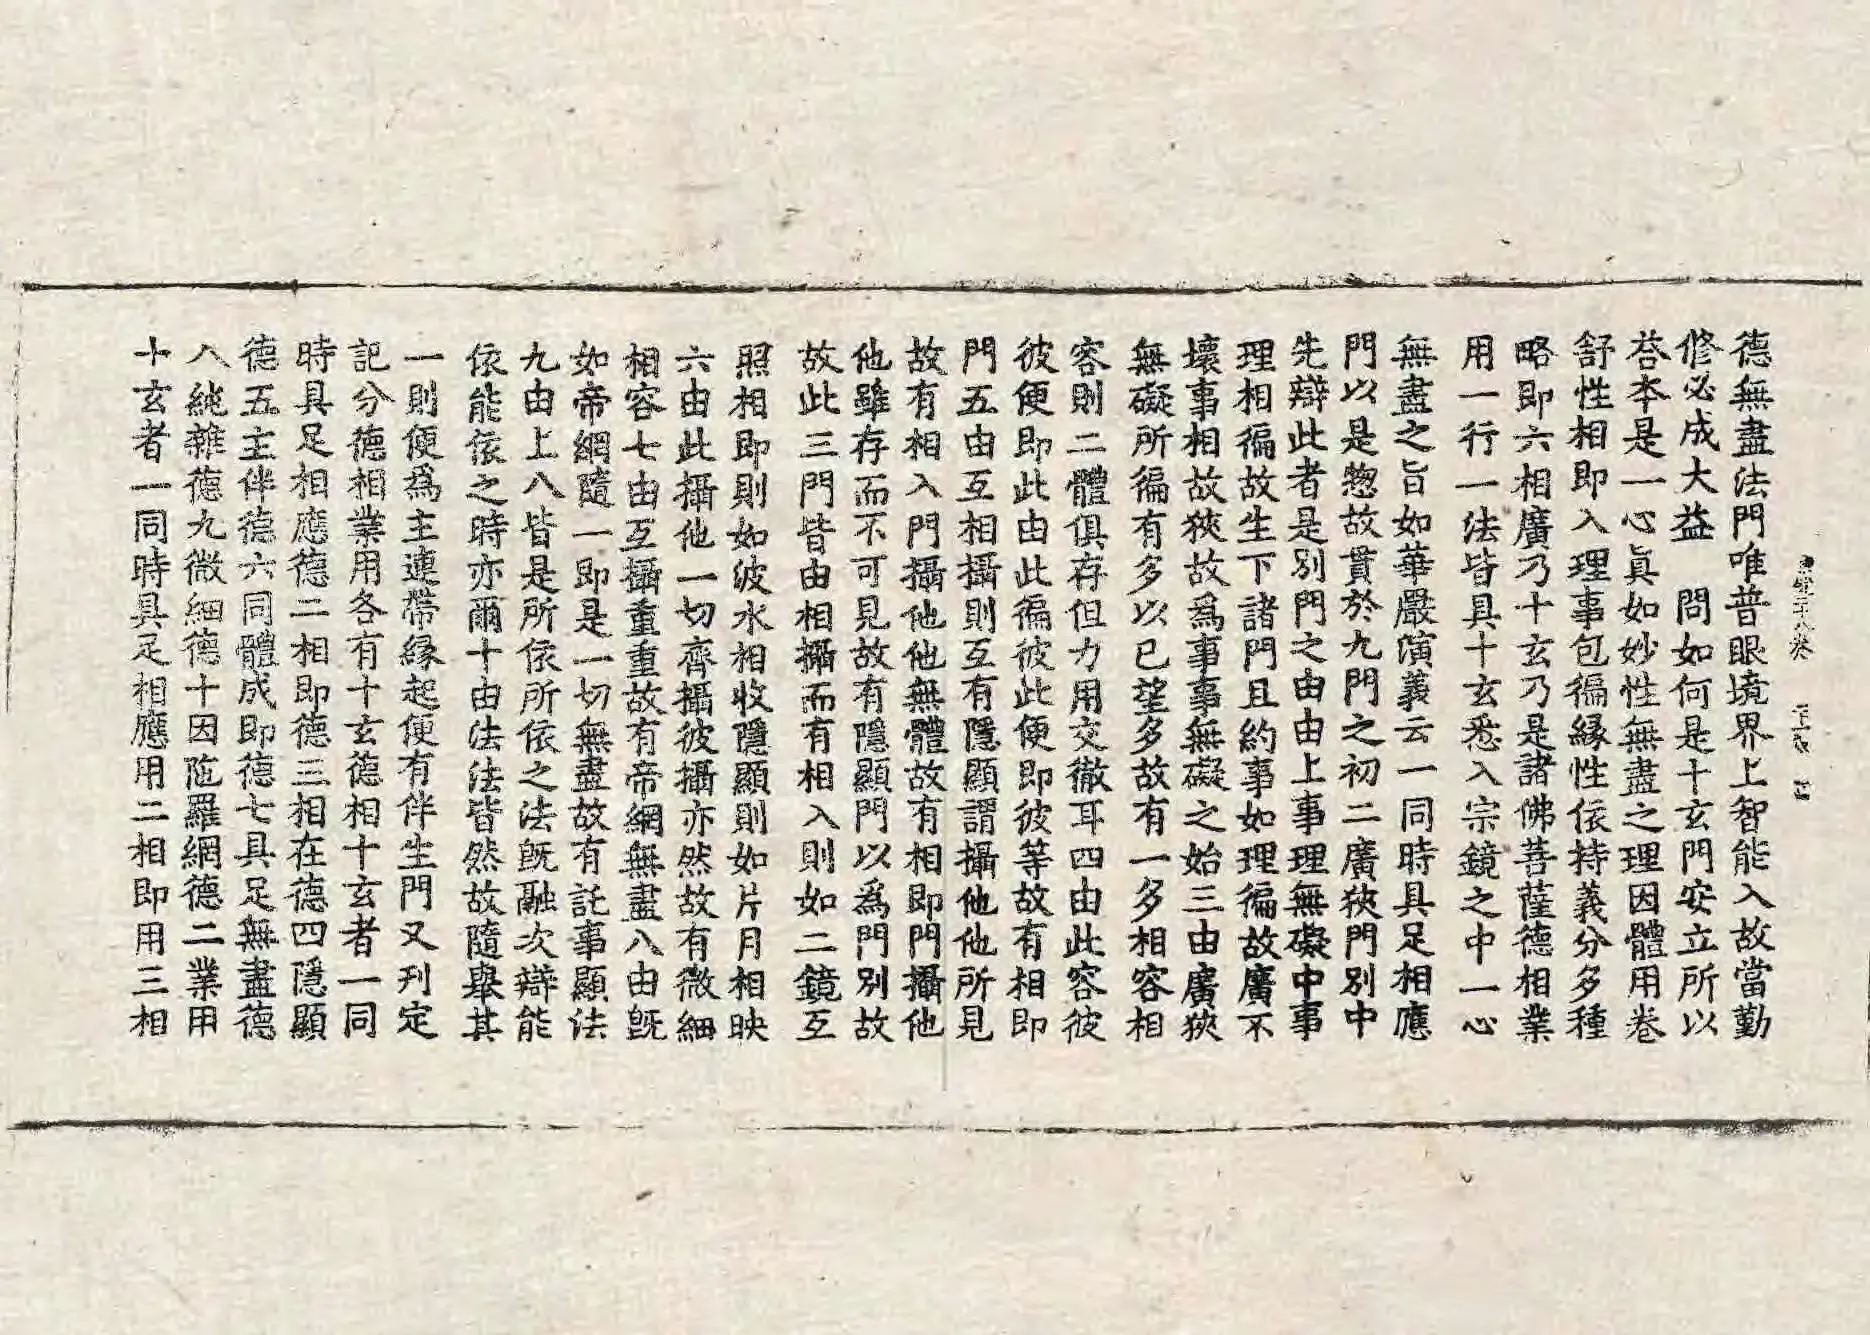 德無盡法門唯普眼境界上智能入故當勤
修必成大益　問如何是十玄門安立所以
荅本是一心真如妙性無盡之理因體用卷
舒性相即入理事包徧緣性依持義分多種
略即六相廣乃十玄乃是諸佛菩薩德相業
用一行一法皆具十玄悉入宗鏡之中一心
無盡之旨如華嚴演義云一同時具足相應
門以是惣故貫於九門之初二廣狹門別中
先辯此者是別門之由由上事理無礙中事
理相徧故生下諸門且約事如理徧故廣不
壞事相故狹故為事事無礙之始三由廣狹
無礙所徧有多以己望多故有一多相容相
容則二體俱存但力用交徹耳四由此容彼
彼便即此由此徧彼此便即彼等故有相即
門五由互相攝則互有隱顯謂攝他他所見
故有相入門攝他他無體故有相即門攝他
他雖存而不可見故有隱顯門以為門別故
故此三門皆由相攝而有相入則如二鏡互
照相即則如波水相收隱顯則如片月相映
六由此攝他一切齊攝彼攝亦然故有微細
相容七由互攝重重故有帝網無盡八由旣
如帝網隨一即是一切無盡故有託事顯法
九由上八皆是所依所依之法旣融次辯能
依能依之時亦爾十由法法皆然故隨舉其
一則便為主連帶緣起便有伴生門又刊定
記分德相業用各有十玄德相十玄者一同
時具足相應德二相即德三相在德四隱顯
德五主伴德六同體成即德七具足無盡德
八純雜德九微細德十因陁羅網德二業用
十玄者一同時具足相應用二相即用三相